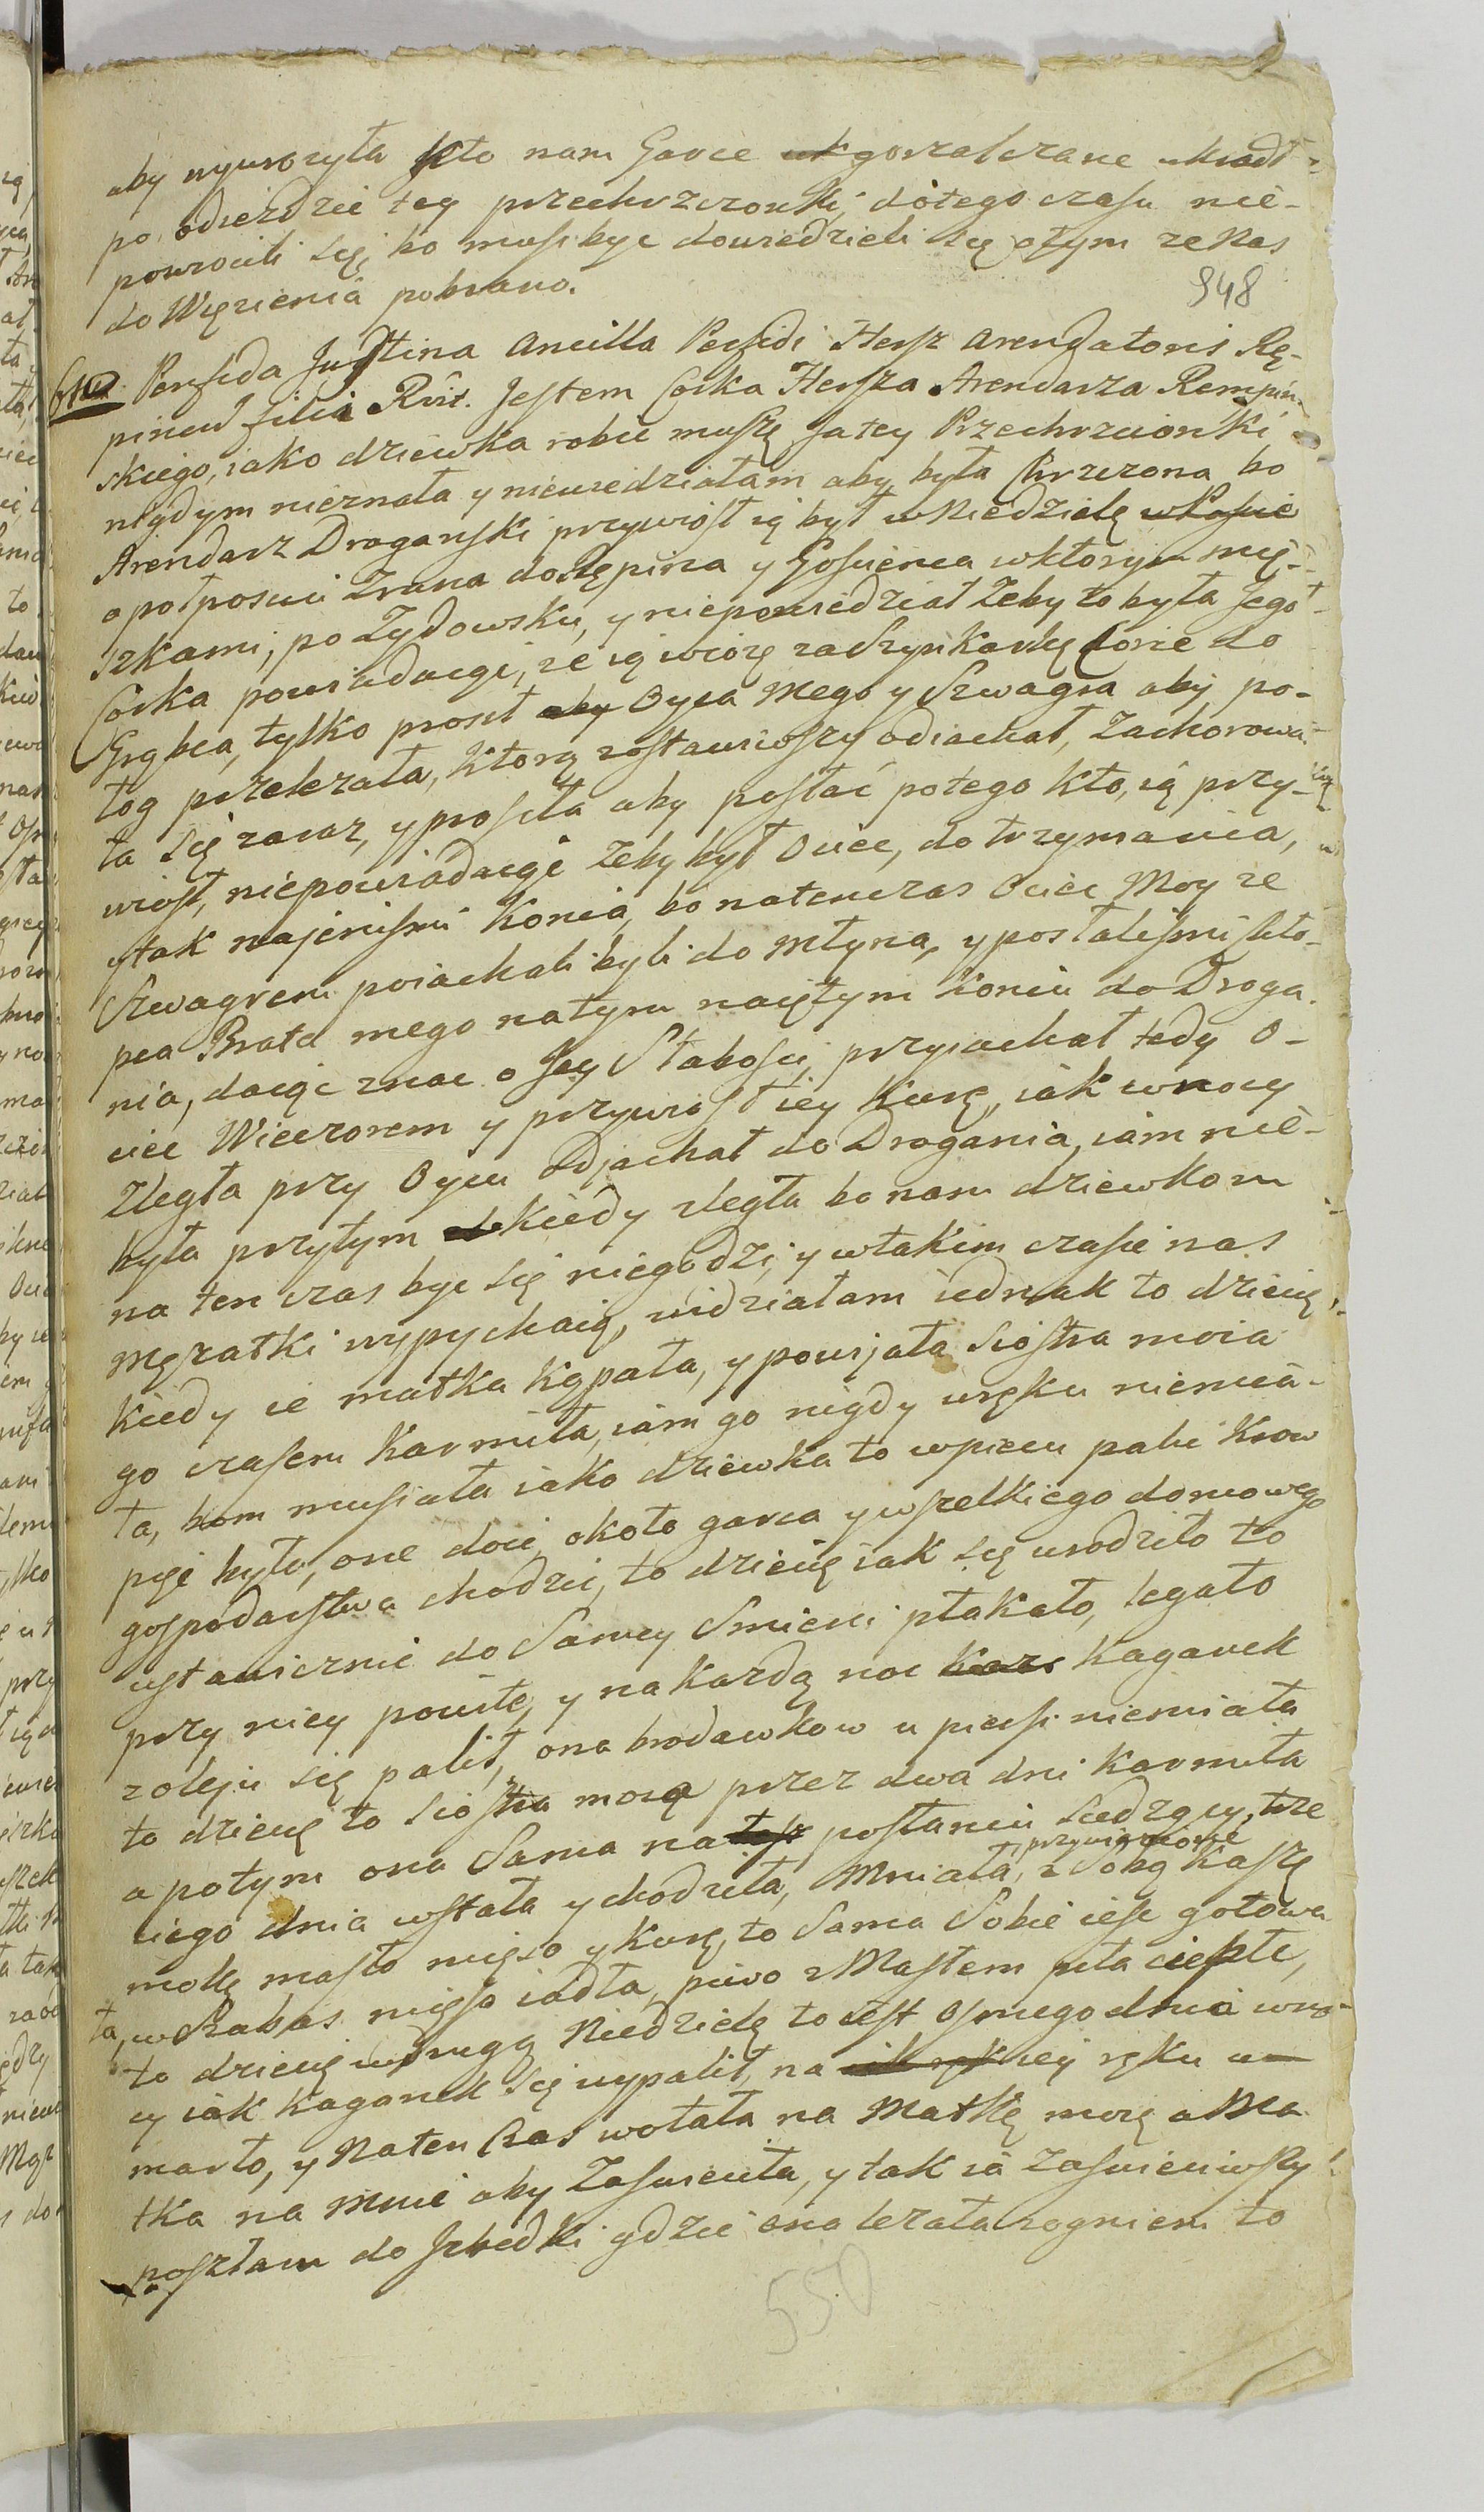 aby wywrozyła kto nam Garce gorzałczane ukradł
po odieździe tey przechrzczonki, do tego czasu nie-
powrocili się, bo musi byc dowiedzieli się o tym ze nas
do Więzienia pobrano.
948
6to Perfida Justina Ancilla Perfidi Hersz Arendatoris Rę-
pinen filia Rńt. Jestem Corka Herszka Arendarza Rempin-
skiego, iako dziewka robie muszę Ja tey Przechrzcionki
nigdym nieznała y niewiedziałam aby była Chrzczona, bo
Arendarz Draganski przywiosł ią był w Niedzielę w Poście
o połposciu Zrana do Rępina y Goscienca w ktorym mię-
szkami, po Zydowsku, y niepowiedział Zeby to była Jego
Corka powiadaiąc, ze ią wiozę za Szynkarkę Corie do
Grąbca, tylko prosił aby Oyca Mego y Szwagra aby po-
łog przelezała, ktorą zostawiwszy odiachał, Zachorowa-
ła się zaraz, y prosiła aby posłać po tego kto, ią przy-
wiosł, niepowiadaiąc Zeby był Ociec, do trzymania,
y tak najeniśmi Konia, bo natenczas Ociec Moy ze
Szwagrem poiachali byli do Młyna, y posłaliśmi chło-
pca Brata mego na tym naiętym koniu do Draga-
nia, daiąc znac o Jey Słabości, przyiachał tedy O-
ciec Wieczorem y przywiosł iey Kurę, iak w nocy
Zległa przy Oycu Odjachał do Dragania, iam nie-
była przytym kiedy zległa bo nam dziewkom
na ten czas byc się niegodzi, y w takim czasie nas
Męzatki wypychaią, widziałam iednak to dziecię
kiedy ie matka kąpała, y powijała Siostra moia
go czasem karmiła, iam go nigdy w ręku niemia-
ła, bom musiała iako dziewka to w piecu palic krow
pięć było, one doic, około garca y wszelkiego domowego
gospodarstwa chodzic, to dziecię iak się urodziło to
ustawicznie do Samey Smierci płakało, legało
przy niey powite, y na kazdą noc kaganek
z oleju się palił, ona brodawkow u piersi niemiała
to dziecię to Siostra moia przez dwa dni karmiła
a potym ona Sama na posłaniu Siedzący, trze
ciego dnia wstała y chodziła, Mniała, przywiezione z Sobą Kaszę
mąkę masło mięso y Kurę, to Sama Sobie iesc gotowa
ła, w Szabas mięso iadła, piwo z Masłem piła ciepłe,
to dziecię w drugą Niedzielę to iest Osmego dnia w no-
cy iak kaganek się wypalił, na iey ręku u-
marło, y Naten Czas wołała na Matkę moię a Ma
tka na Mnie aby Zaswieciła, y tak ia Zaswieciwszy
poszłam do Izbedki gdzie ona lezała z ogniem to
550